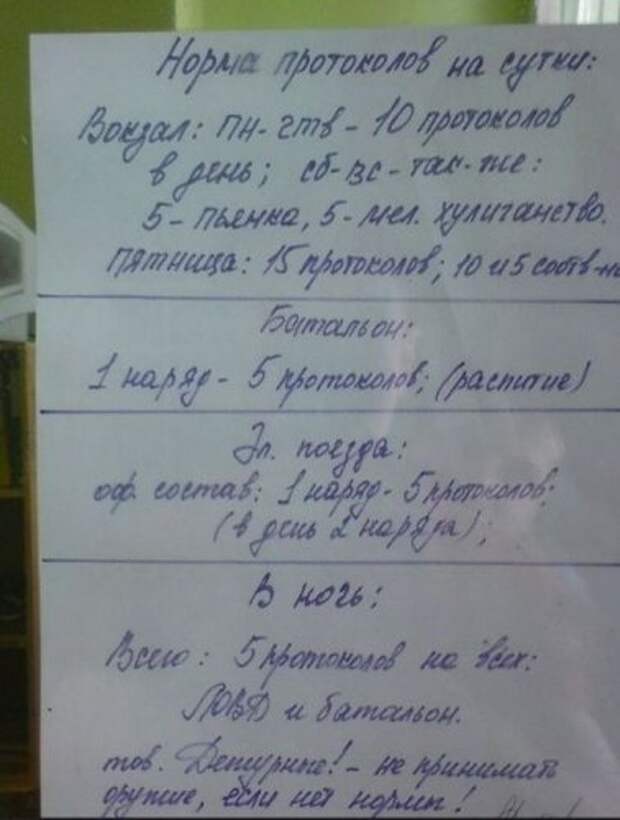 Норма протоколов на сутки:
Вокзал: пн-чтв - 10 протоколов
в день; сб-вс-так-же:
5-пьянка, 5-мел. хулиганство.
Пятница: 15 протоколов; 10 и 5 соотв-но
Батальон:
1 наряд - 5 протоколов; (распитие)
Эл. поезда:
оф. состав: 1 наряд - 5 протоколов;
(в день 2 наряда);
В ночь:
Всего: 5 протоколов на всех:
ЛОВД и батальон.
тов. Дежурные! - не принимать
оружие, если нет нормы!